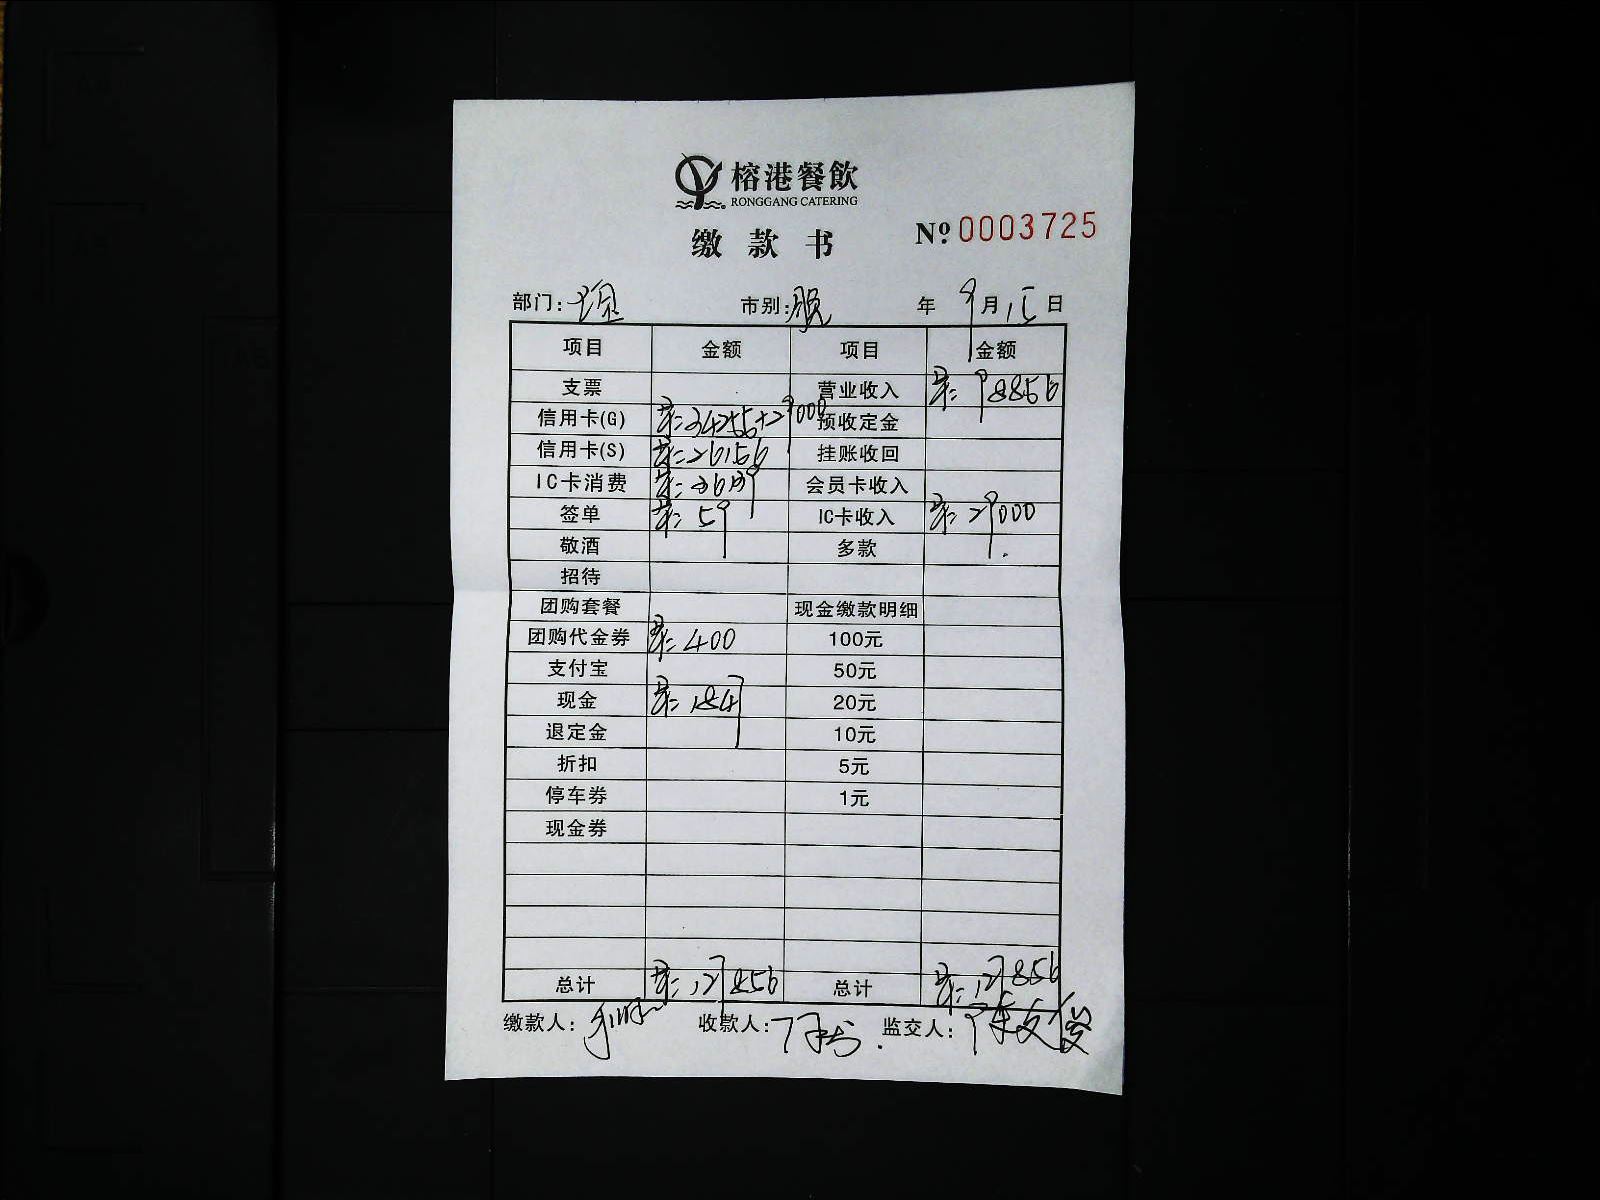 榕港餐飲
RONGGANG CATERING
缴款书
Nº 0003725
部门: 市别: 年 9月15日
项目 金额 项目 金额
支票 营业收入 98856
信用卡(G) 34255+29000 预收定金
信用卡(S) 26156 挂账收回
IC卡消费 会员卡收入
签单 59 IC卡收入 29000
敬酒 多款
招待
团购套餐 现金缴款明细
团购代金券 400 100元
支付宝 50元
现金 1847 20元
退定金 10元
折扣 5元
停车券 1元
现金券
总计 127856 总计 127856
缴款人: 收款人: 监交人: 陈文俊